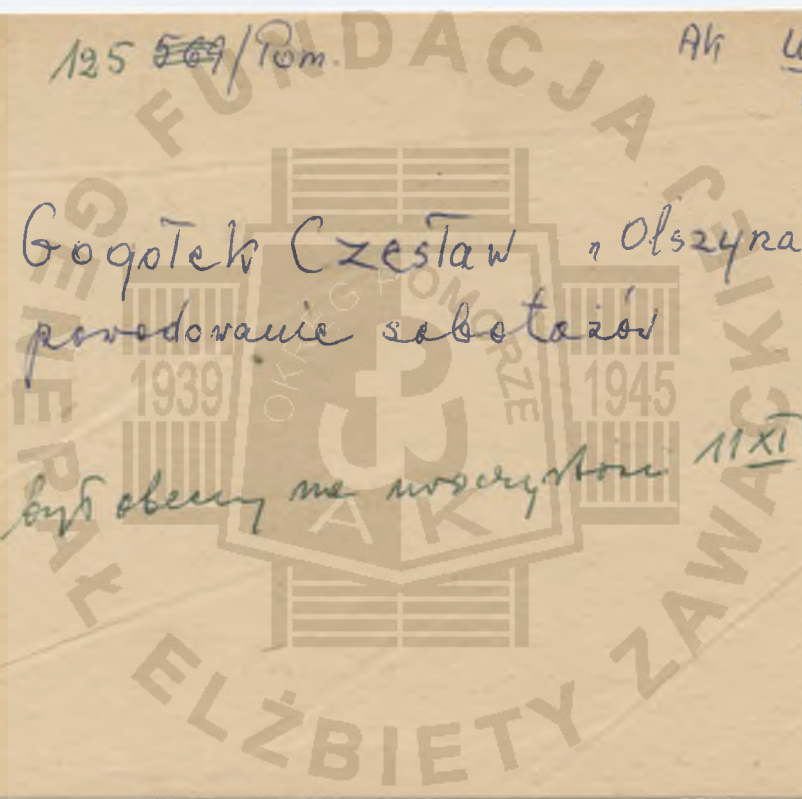 125 569/Pom. AK
Gogołek Czesław „Olszyna
powodowanie sabotażów
był obecny na uroczystości 11 XI
FUNDACJA GENERAŁ ELŻBIETY ZAWACKIEJ
OKRĘG POMORZE
1939 1945
AK